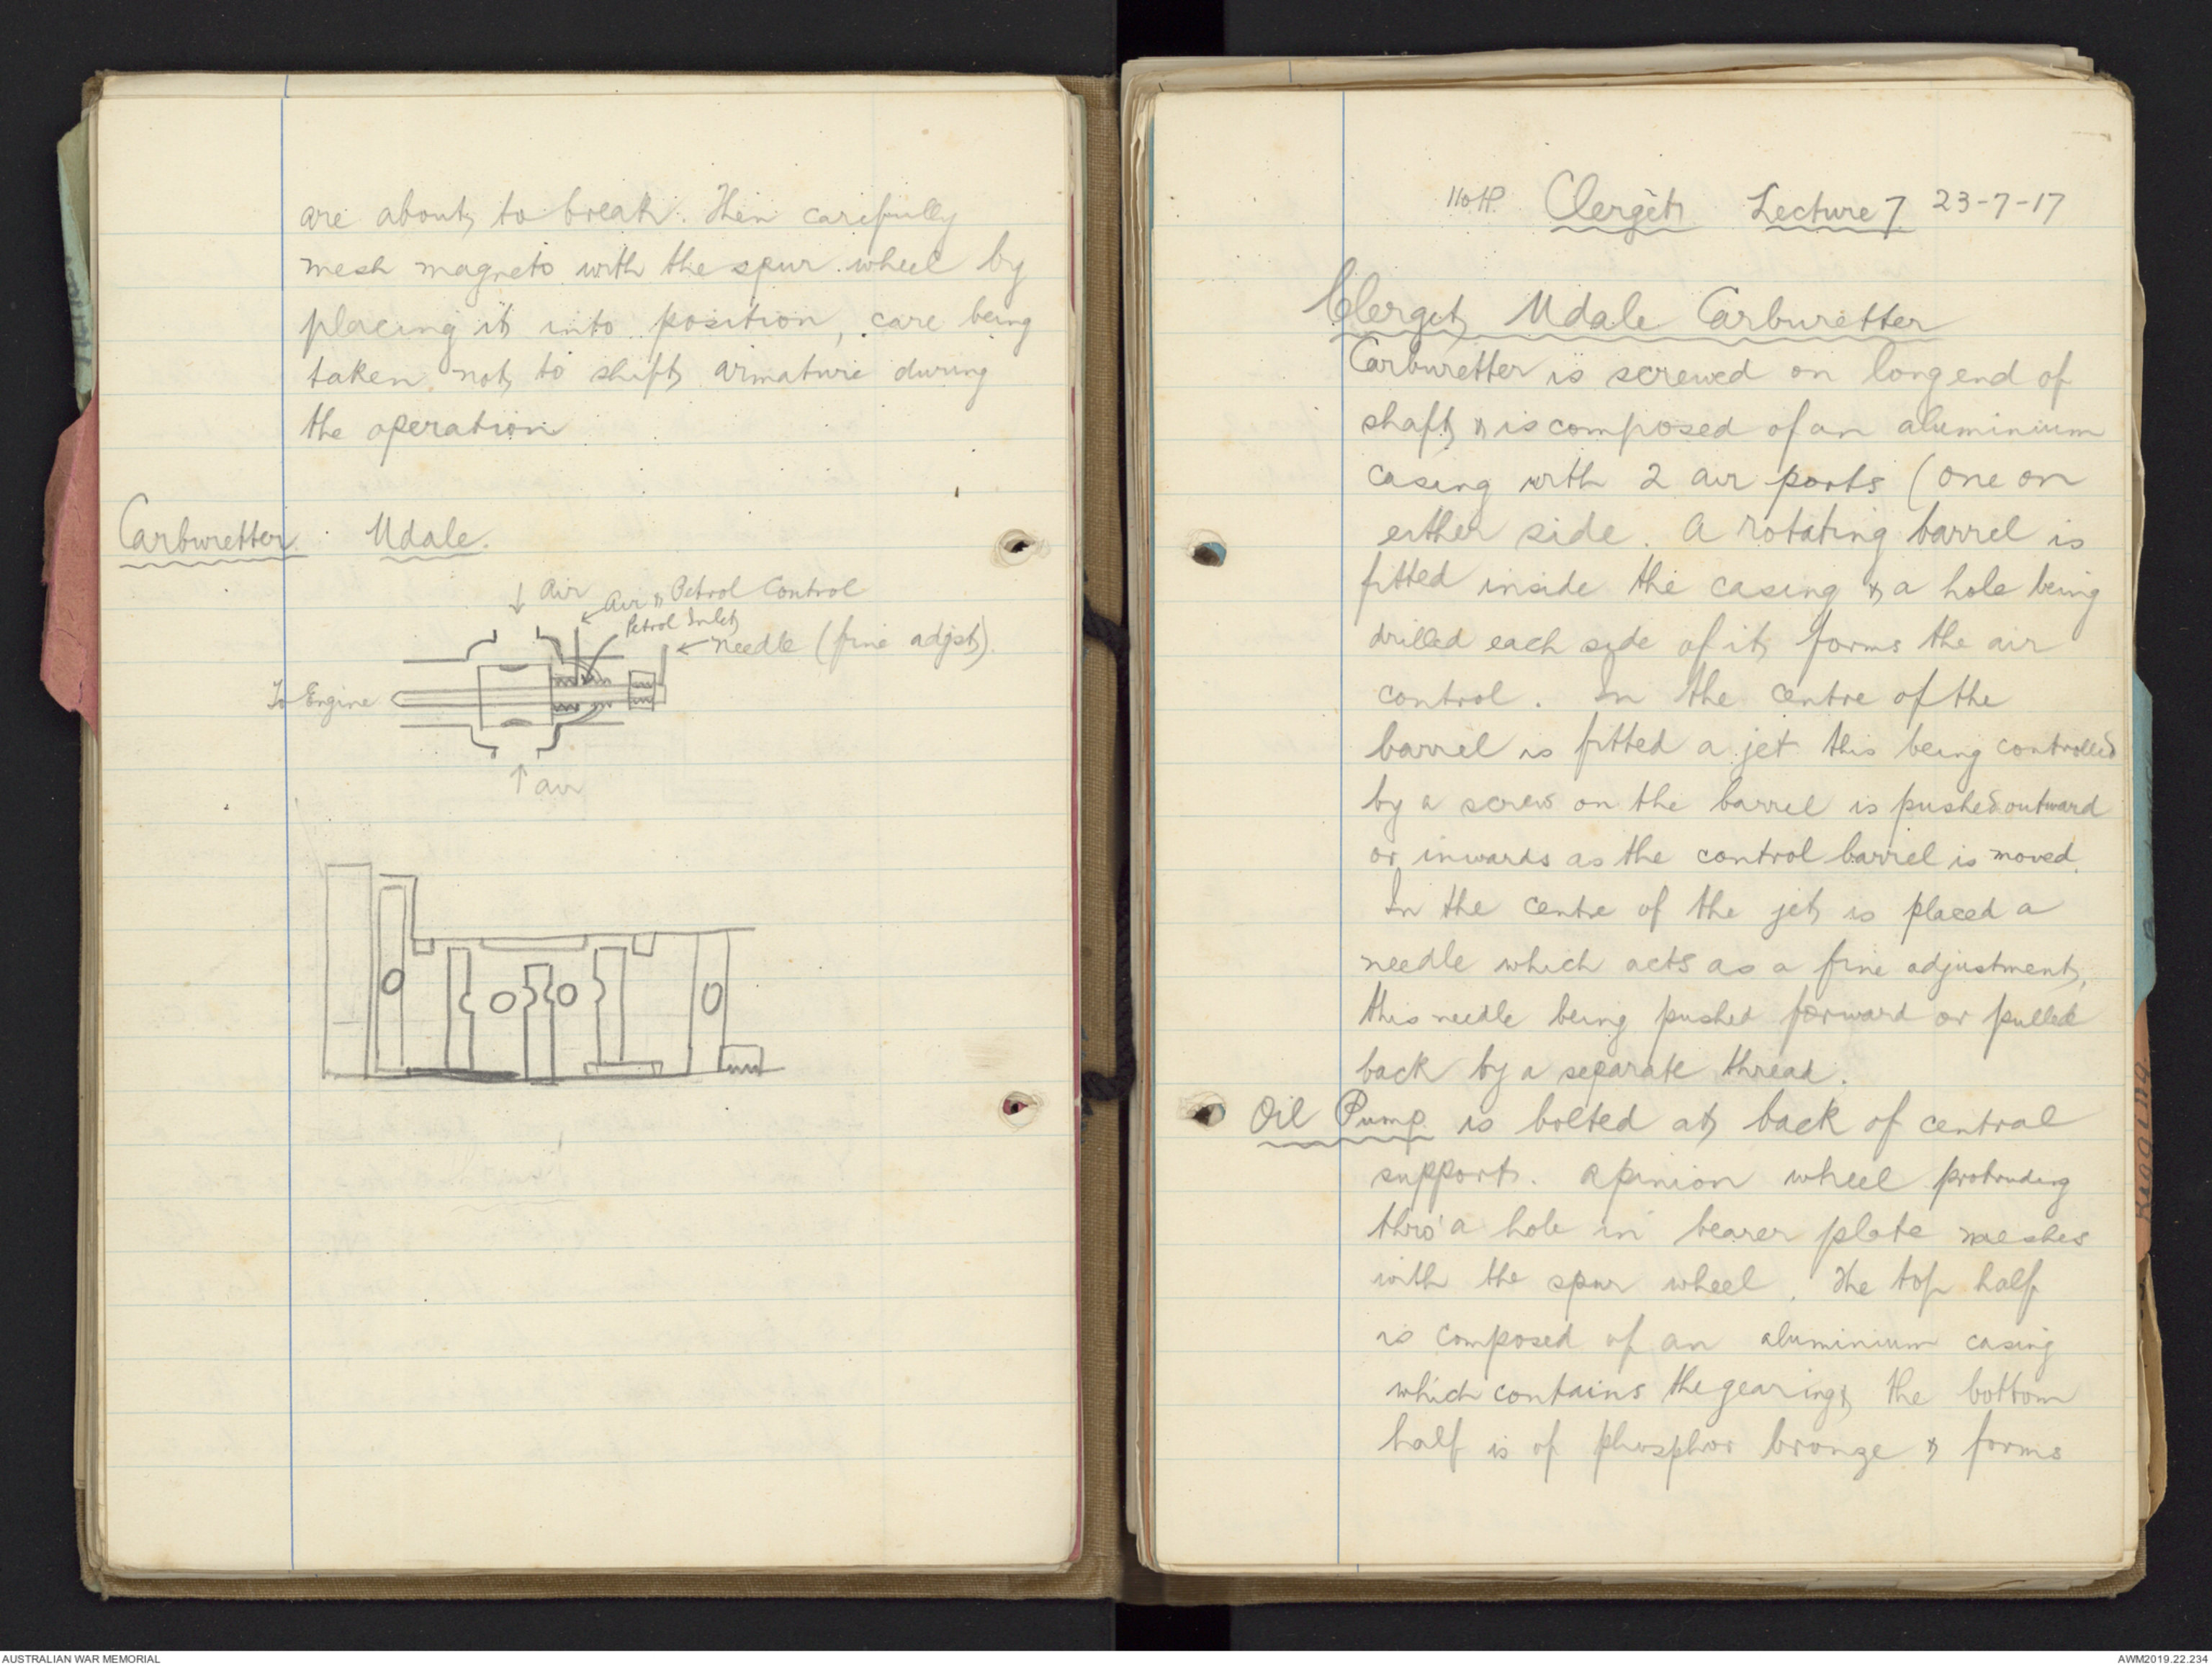 are about to break. Then carefully
mesh magneto with the spur wheel by
placing it into position, care being
taken not to shift armature during
the operation
Carburetter Udale.
↓ Air
Air & Petrol Control
Petrol Inlet
← Needle (fine adjst).
To Engine
↑ air
110 HP. Clerget Lecture 7 23-7-17
Clerget Udale Carburetter
Carburetter is screwed on long end of
shaft & is composed of an aluminium
casing with 2 air ports (one on
either side. A rotating barrel is
fitted inside the casing & a hole being
drilled each side of it forms the air
control. In the centre of the
barrel is fitted a jet this being controlled
by a screw on the barrel is pushed outward
or inwards as the control barrel is moved.
In the centre of the jet is placed a
needle which acts as a fine adjustment,
this needle being pushed forward or pulled
back by a separate thread.
Oil Pump is bolted at back of central
support. A pinion wheel protruding
thro' a hole in bearer plate meshes
with the spur wheel. The top half
is composed of an aluminium casing
which contains the gearing & the bottom
half is of phosphor bronze & forms
AUSTRALIAN WAR MEMORIAL
AWM2019.22.234